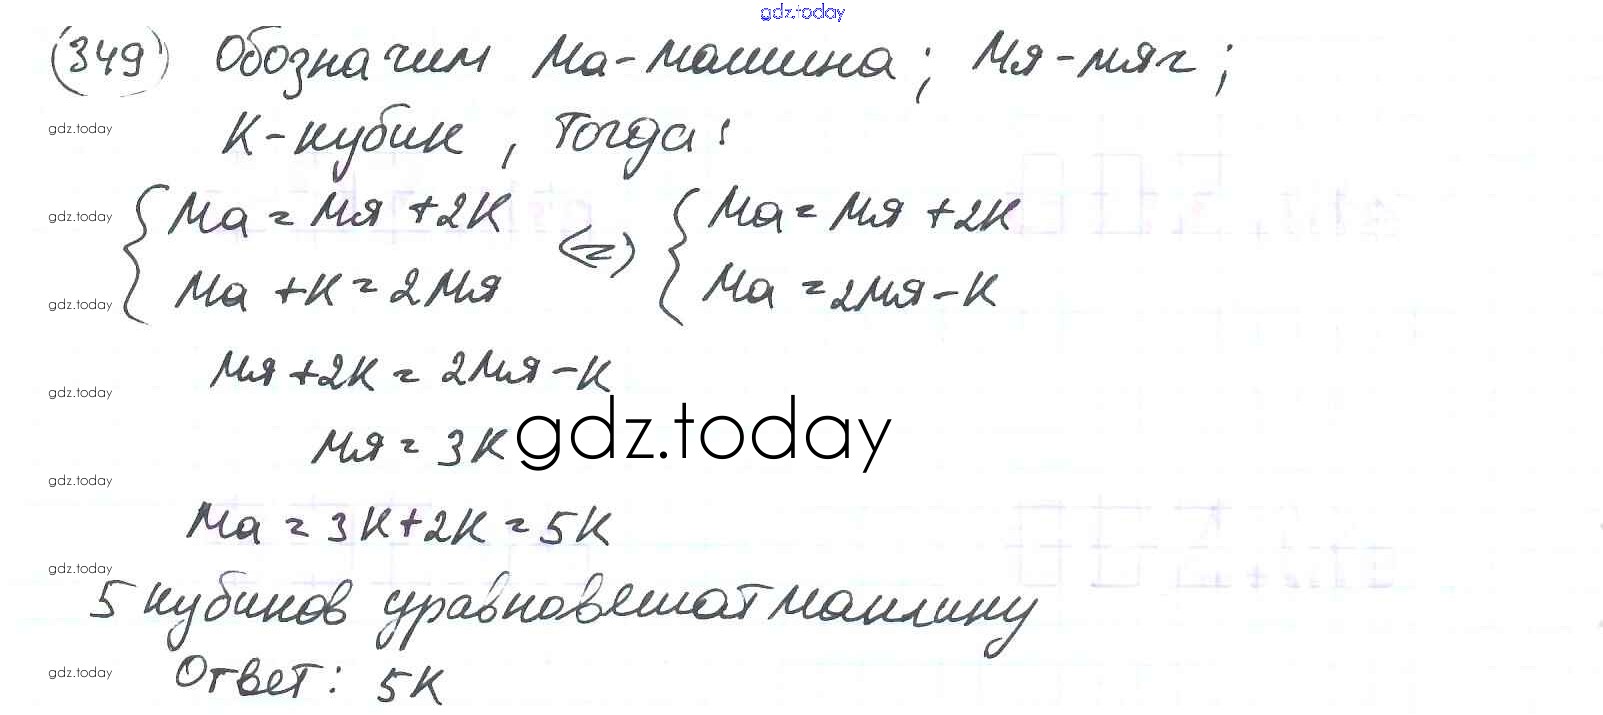 gdz.today
(349) Обозначим Ма-машина; Мя-мяч;
gdz.today
К-кубик, тогда:
gdz.today
{ Ма = Мя + 2К <=> { Ма = Мя + 2К
Ма + К = 2Мя Ма = 2Мя - К
gdz.today
Мя + 2К = 2Мя - К
gdz.today
Мя = 3К
gdz.today
gdz.today
Ма = 3К + 2К = 5К
gdz.today
5 кубиков уравновешат машину
gdz.today
Ответ: 5К